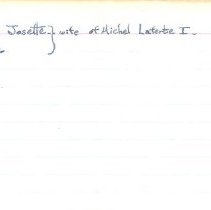 Josette } wife of Michel Laterte I.